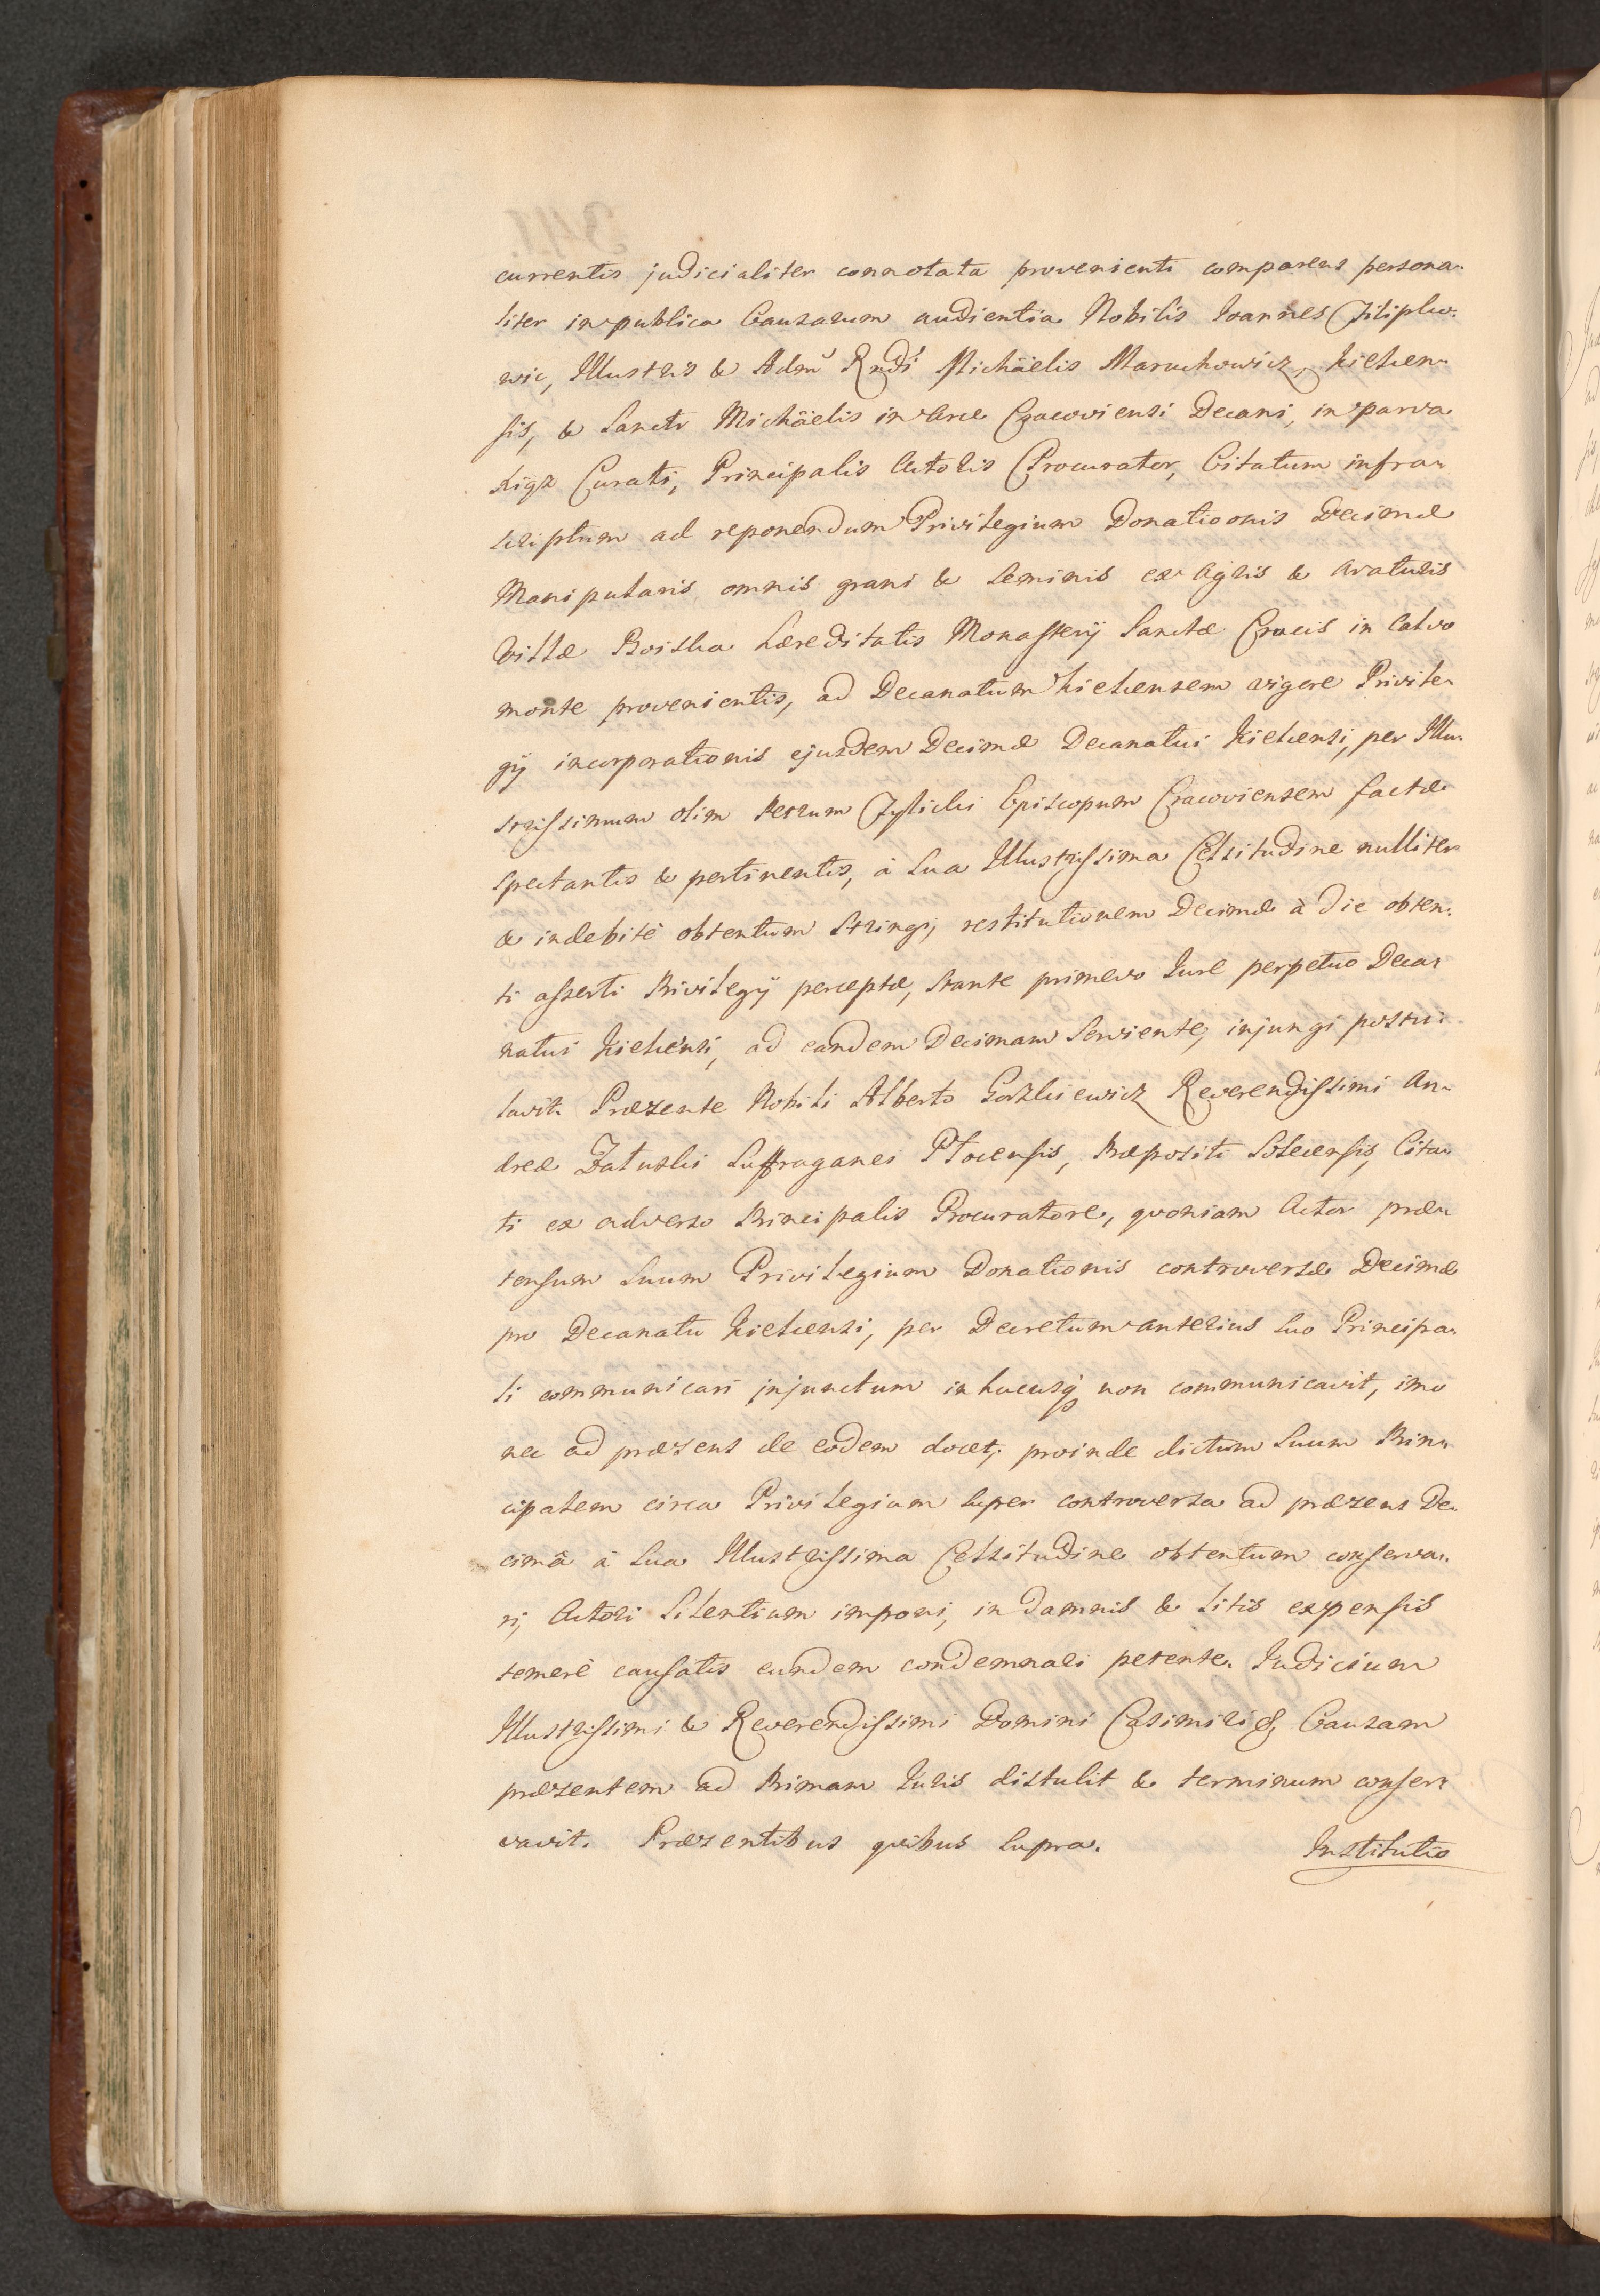 currentis judicialiter connotata provenienti comparens persona-
liter in publica Causarum audientia Nobilis Joannes Filipko-
wic, Illustris & Adm Rndi Michäelis Maruchowicz, Kielcen-
sis, & Sancti Michäelis in Arce Cracoviensi Decani, in parva
Xięz Curati, Principalis Actoris Procurator, Citatum infra-
scriptum ad reponendum Privilegium Donationis Decimæ
Manipularis omnis grani & Seminis ex Agris & Araturis
Villæ Boiska hæreditatis Monasterij Sanctæ Crucis in Calvo
monte provenientis, ad Decanatum Kielcensem vigore Privile-
gij incorporationis ejusdem Decimæ Decanatui Kielcensi, per Illu-
strissimum olim Petrum Tylicki Episcopum Cracoviensem factæ
spectantis & pertinentis, à Sua Illustrissima Celsitudine nulliter
& indebitè obtentum stringi, restitutionem Decimæ à die obten-
ti asserti Privilegij perceptæ, stante primevo Jure perpetuo Deca-
natui Kielcensi, ad eandem Decimam Serviente, injungi postu-
lavit. Præsente Nobili Alberto Gorzkiewicz Reverendissimi An-
dreæ Zaluski Suffraganei Plocensis, Præpositi Solecensis, Cita-
ti ex adverso Principalis Procuratore, qvoniam Actor præ-
tensum Suum Privilegium Donationis controversæ Decimæ
pro Decanatu Kielcensi, per Decretum anterius Suo Principa-
li communicari injunctum in hucusq non communicavit, imo
nec ad præsens de eodem docet, proinde dictum Suum Prin-
cipalem circa Privilegium super controversa ad præsens De-
cimâ à Sua Illustrissima Celsitudine obtentum conserva-
ri, Actori Silentium imponi, in damnis & Litis expensis
temerè causatis eundem condemnari petente. Judicium
Illustrissimi & Reverendissimi Domini Casimiri &, Causam
præsentem ad Primam Juris distulit & terminum conser-
vavit. Præsentibus qvibus Supra. Institutio